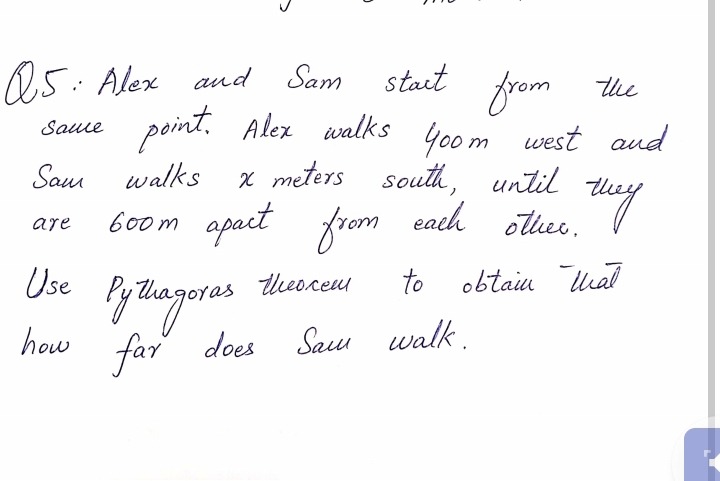 Q5: Alex and Sam start from the
same point. Alex walks 400m west and
Sam walks x meters south, until they
are 600m apart from each other.
Use Pythagoras theorem to obtain that
how far does Sam walk.